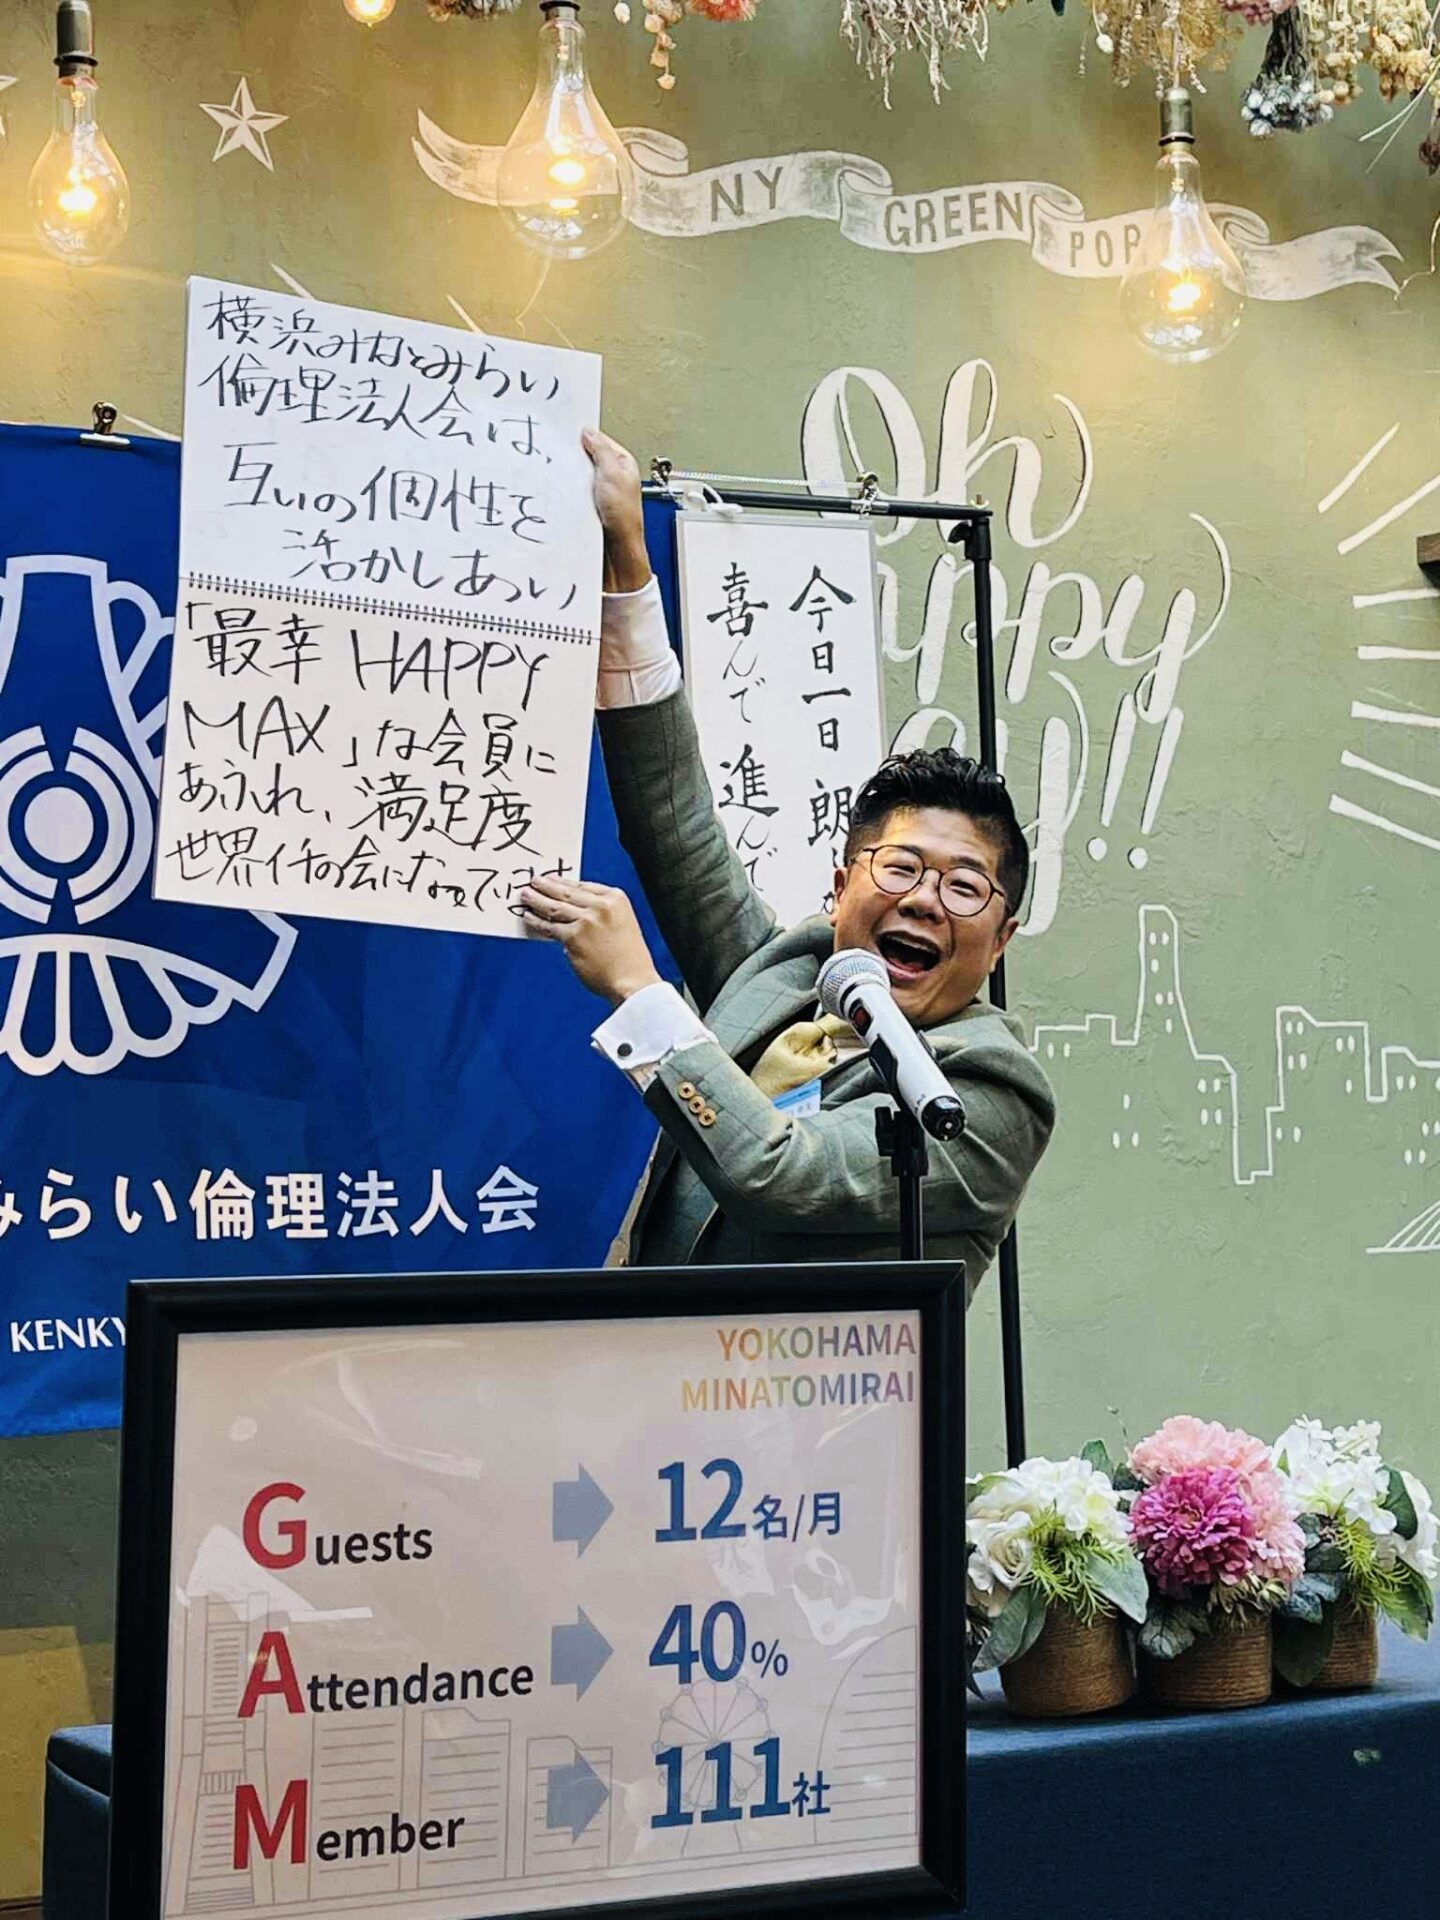 NY GREEN POP
Oh
appy
ay!!
横浜みなとみらい
倫理法人会は、
互いの個性を
活かしあい
「最幸 HAPPY
MAX」な会員に
あふれ、満足度
世界イチの会になってます
今日一日 朗
喜んで 進んで
みらい倫理法人会
KENKY
YOKOHAMA
MINATOMIRAI
Guests 12名/月
Attendance 40%
Member 111社